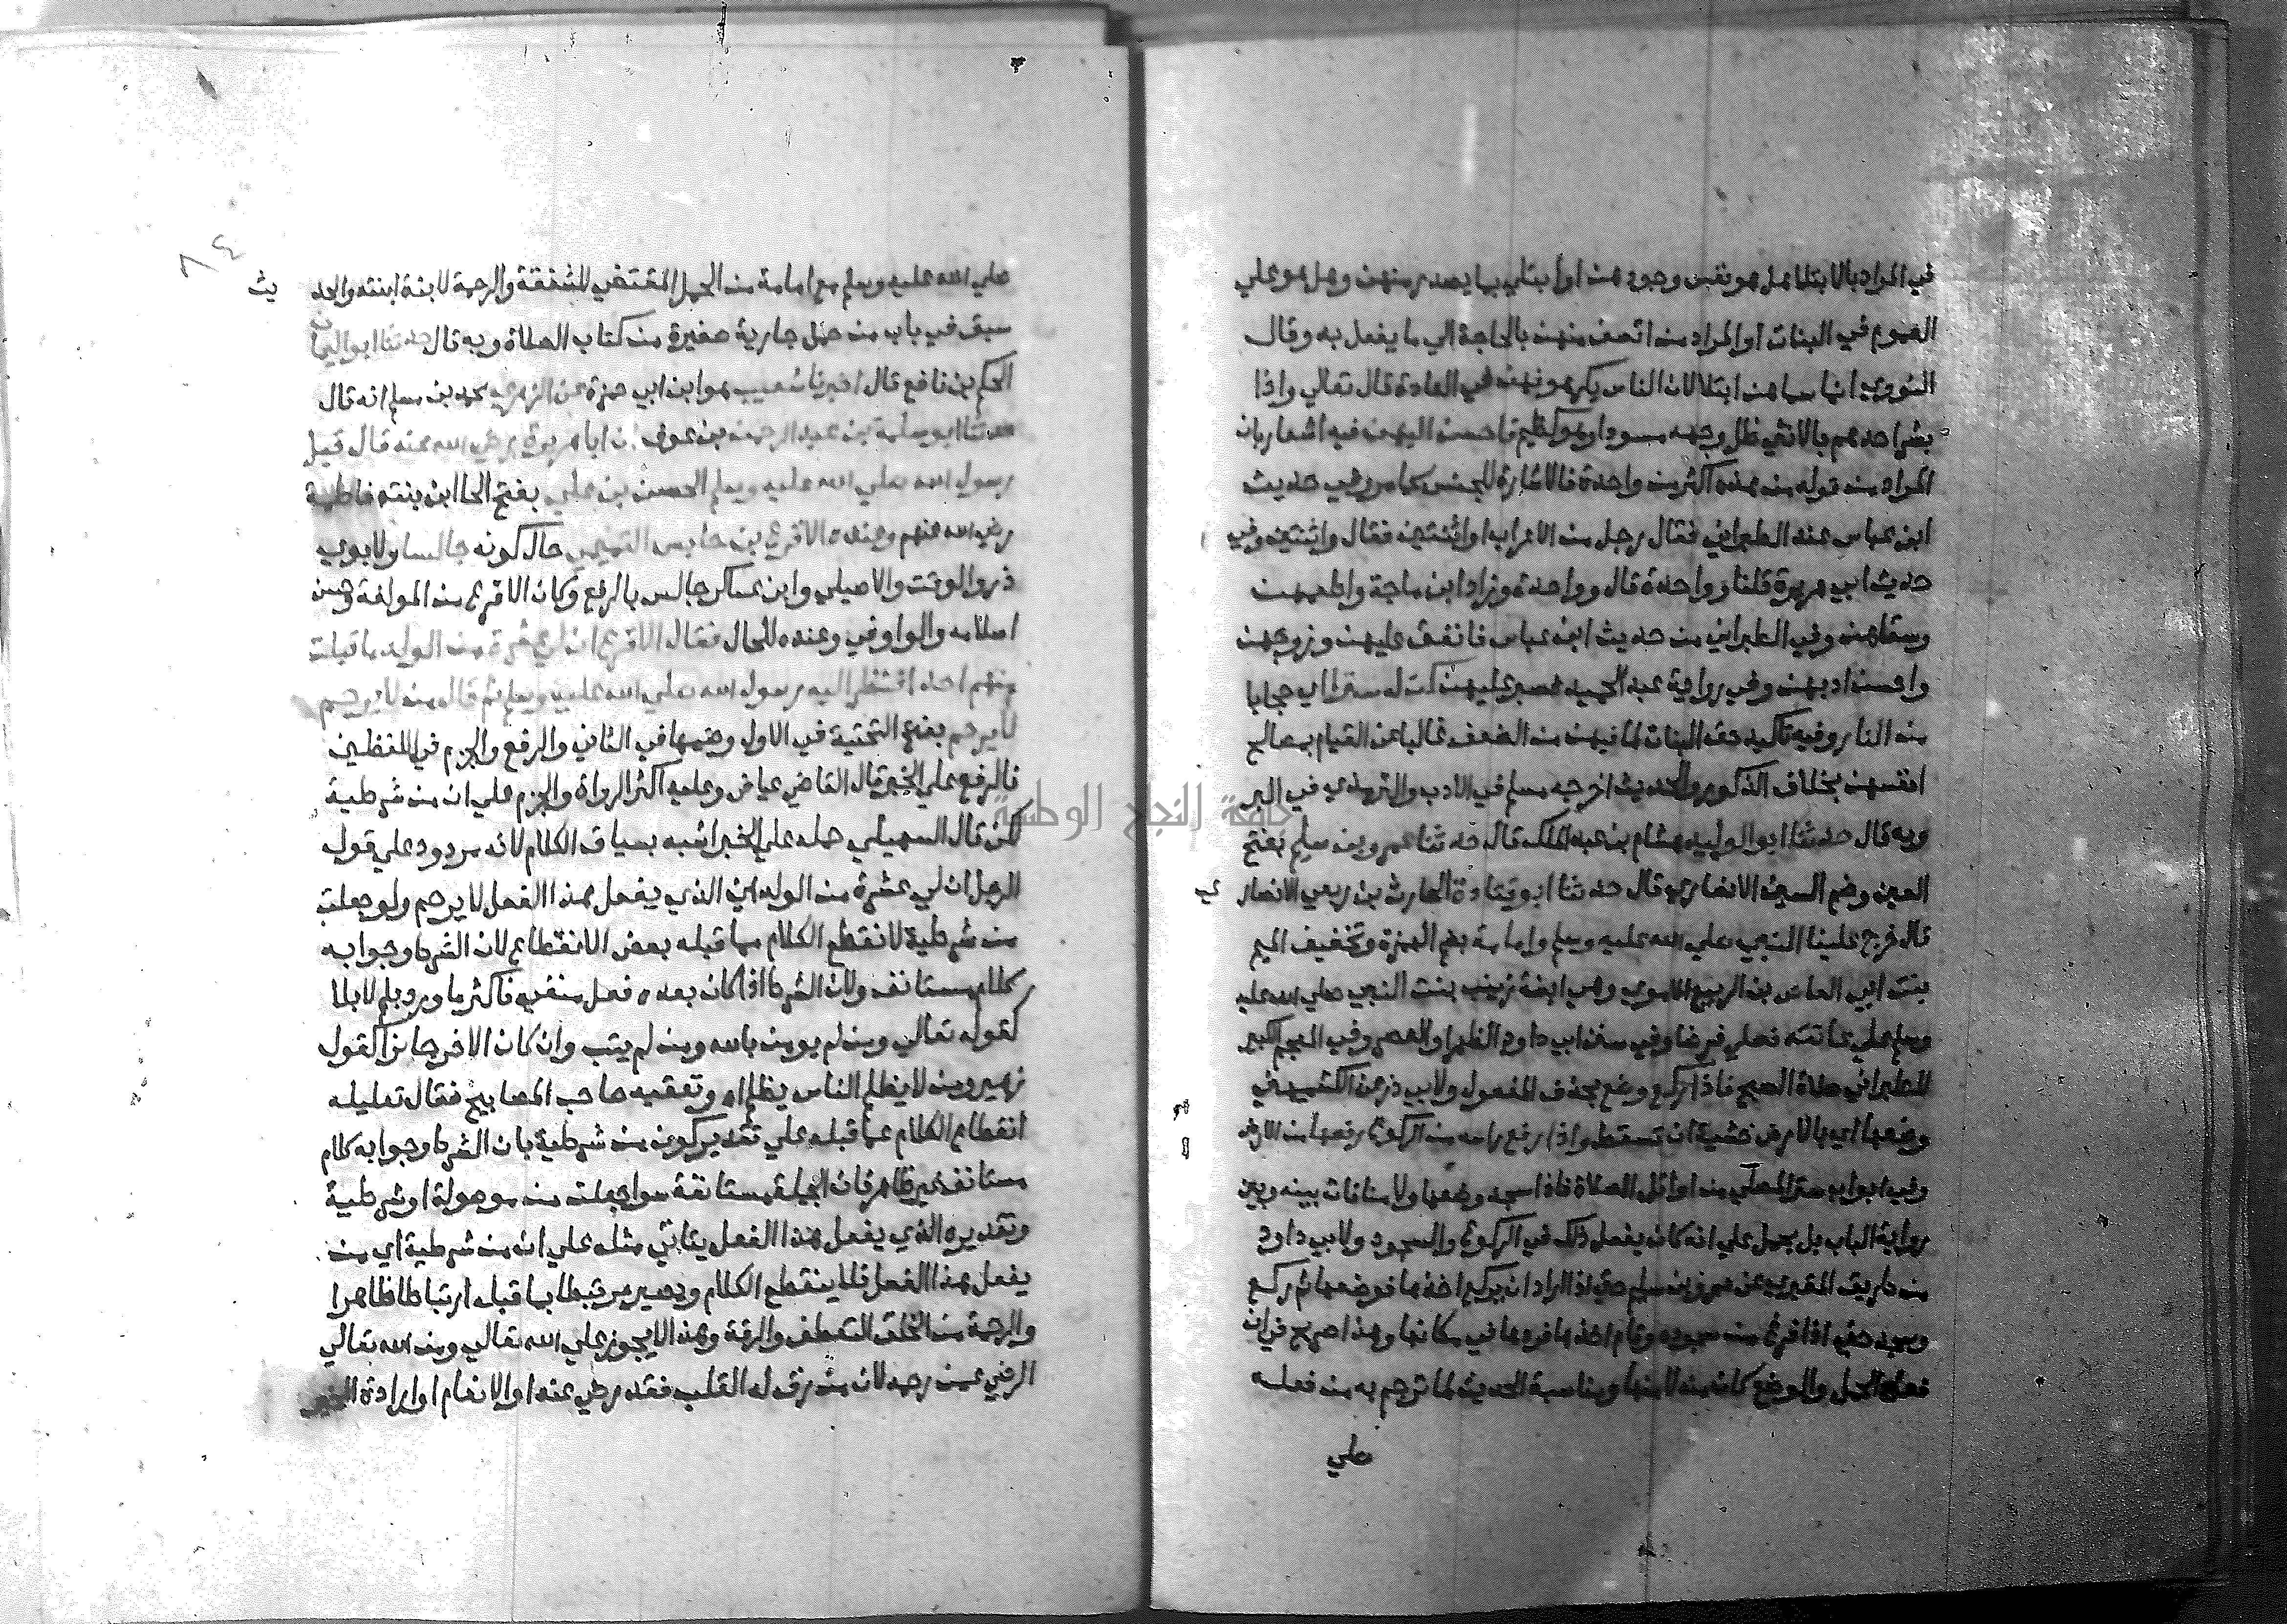 في المراد بالابتلا هل هو نفس وجودهن او ابتلي بما يصدر منهن وهل هو علي
العموم في البنات او المراد من اتصف منهن بالحاجة الي ما يفعل به وقال
النووي انما سماهن ابتلا لان الناس يكرهونهن في العادة قال تعالي واذا
بشر احدهم بالانثي ظل وجهه مسودا وهو كظيم فاحسن اليهن فيه اشعار بان
المراد من قوله من هذه اكثر من واحدة فالاشارة للجنس كما مر وفي حديث
ابن عباس عند الطبراني فقال رجل من الاعراب او اثنتين فقال واثنتين وفي
حديث ابي هريرة قلنا وواحدة قال وواحدة وزاد ابن ماجة واطعمهن
وسقاهن وفي الطبراني من حديث ابن عباس فانفق عليهن وزوجهن
واحسن ادبهن وفي رواية عبد المجيد فصبر عليهن كن له سترا اي حجابا
من النار وفيه تاكيد حق البنات لما فيهن من الضعف غالبا عن القيام بمصالح
انفسهن بخلاف الذكور والحديث اخرجه مسلم في الادب والترمذي في البر
وبه قال حدثنا ابو الوليد هشام بن عبد الملك قال حدثنا عمرو بن سليم بفتح
العين وضم السين الانصاري قال حدثنا ابو قتادة الحارث بن ربعي الانصار ي
قال خرج علينا النبي صلي الله عليه وسلم وامامة بضم الهمزة وتخفيف الميم
بنت ابي العاص بن الربيع الاموي وهي ابنة زينب بنت النبي صلي الله عليه
وسلم علي عاتقه فصلي فرضا وفي سنن ابي داود الظهر او العصر وفي المعجم الكبير
للطبراني صلاة الصبح فاذا ركع وضع بحذف المفعول ولابي ذر عن الكشميهني
وضعها اي بالارض خشية ان تسقط واذا رفع راسه من الركوع رفعها من الارض
وفي ابواب سترة المصلي من اوائل الصلاة فاذا سجد وضعها ولا منافات بينه وبين
رواية الباب بل يحمل علي انه كان يفعل ذلك في الركوع والسجود ولابي داود
من طريق المقبري عن عمرو بن سليم حتي اذا اراد ان يركع اخذها فوضعها ثم ركع
وسجد حتي اذا فرغ من سجوده وقام اخذها فردها في مكانها وهذا صريح في ان
فعل الحمل والوضع كان منه لا منها ومناسبة الحديث لما ترجم به من فعله
صلي
صلي الله عليه وسلم مع امامة من الحمل المقتضي للشفقة والرحمة لابنة ابنته والحد يث
سبق في باب من حمل جارية صغيرة من كتاب الصلاة وبه قال حدثنا ابو اليمان
الحكم بن نافع قال اخبرنا شعيب هو ابن ابي حمزة عن الزهري محمد بن مسلم انه قال
حدثنا ابو سلمة بن عبد الرحمن بن عوف ان ابا هريرة رضي الله عنه قال قبل
رسول الله صلي الله عليه وسلم الحسن بن علي بفتح الحا ابن بنته فاطمة
رضي الله عنهم وعنده الاقرع بن حابس التميمي حال كونه جالسا ولابوي
ذر والوقت والاصيلي وابن عساكر جالس بالرفع وكان الاقرع من المولفة وحسن
اسلامه والواو في وعنده للحال فقال الاقرع ان لي عشرة من الولد ما قبلت
منهم احدا فنظر اليه رسول الله صلي الله عليه وسلم ثم قال من لا يرحم
لا يرحم بفتح التحتية في الاول وضمها في الثاني والرفع والجزم في اللفظين
فالرفع علي الخبر قال القاضي عياض وعليه اكثر الرواة والجزم علي ان من شرطية
لكن قال السهيلي حمله علي الخبر اشبه بسياق الكلام لانه مردود علي قول
الرجل ان لي عشرة من الولد اي الذي يفعل هذا الفعل لا يرحم ولو جعلت
من شرطية لانقطع الكلام مما قبله بعض الانقطاع لان الشرط وجوابه
كلام مستانف ولان الشرط اذا كان بعده فعل منفي فاكثر ما ورد بلم لا بلا
كقوله تعالي ومن لم يومن بالله ومن لم يتب وان كان الاخر جائزا كقول
زهير ومن لا يظلم الناس يظلم اه وتعقبه صاحب المصابيح فقال تعليله
انقطاع الكلام عما قبله علي تقدير كون من شرطية بان الشرط وجوابه كلام
مستانف غير ظاهر فان الجملة مستانفة سوا جعلت من موصولة او شرطية
وتقديره الذي يفعل هذا الفعل يتاتي مثله علي ان من شرطية اي من
يفعل هذا الفعل فلا ينقطع الكلام ويصير مرتبطا بما قبله ارتباطا ظاهرا
والرحمة من الخلق التعطف والرقة وهذا لا يجوز علي الله تعالي ومن الله تعالي
الرضي عمن رحمه لان من رق له القلب فقد رضي عنه او الانعام او ارادة الخير
جامعة النجاح الوطنية